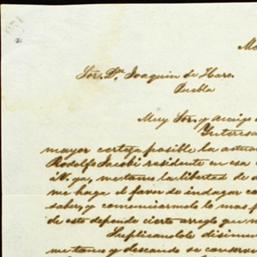 Sor. Dn. Joaquin de Haro.
Puebla
Muy Sor. y amigo
Interesa
mayor certeza posible la actua
Rodolfo Jacobi residente en esa
me tomo la libertad de
me haga el favor de indagar
saber, y comunicarmelo lo mas
de esto depende cierto arreglo que
Suplicandole disimul